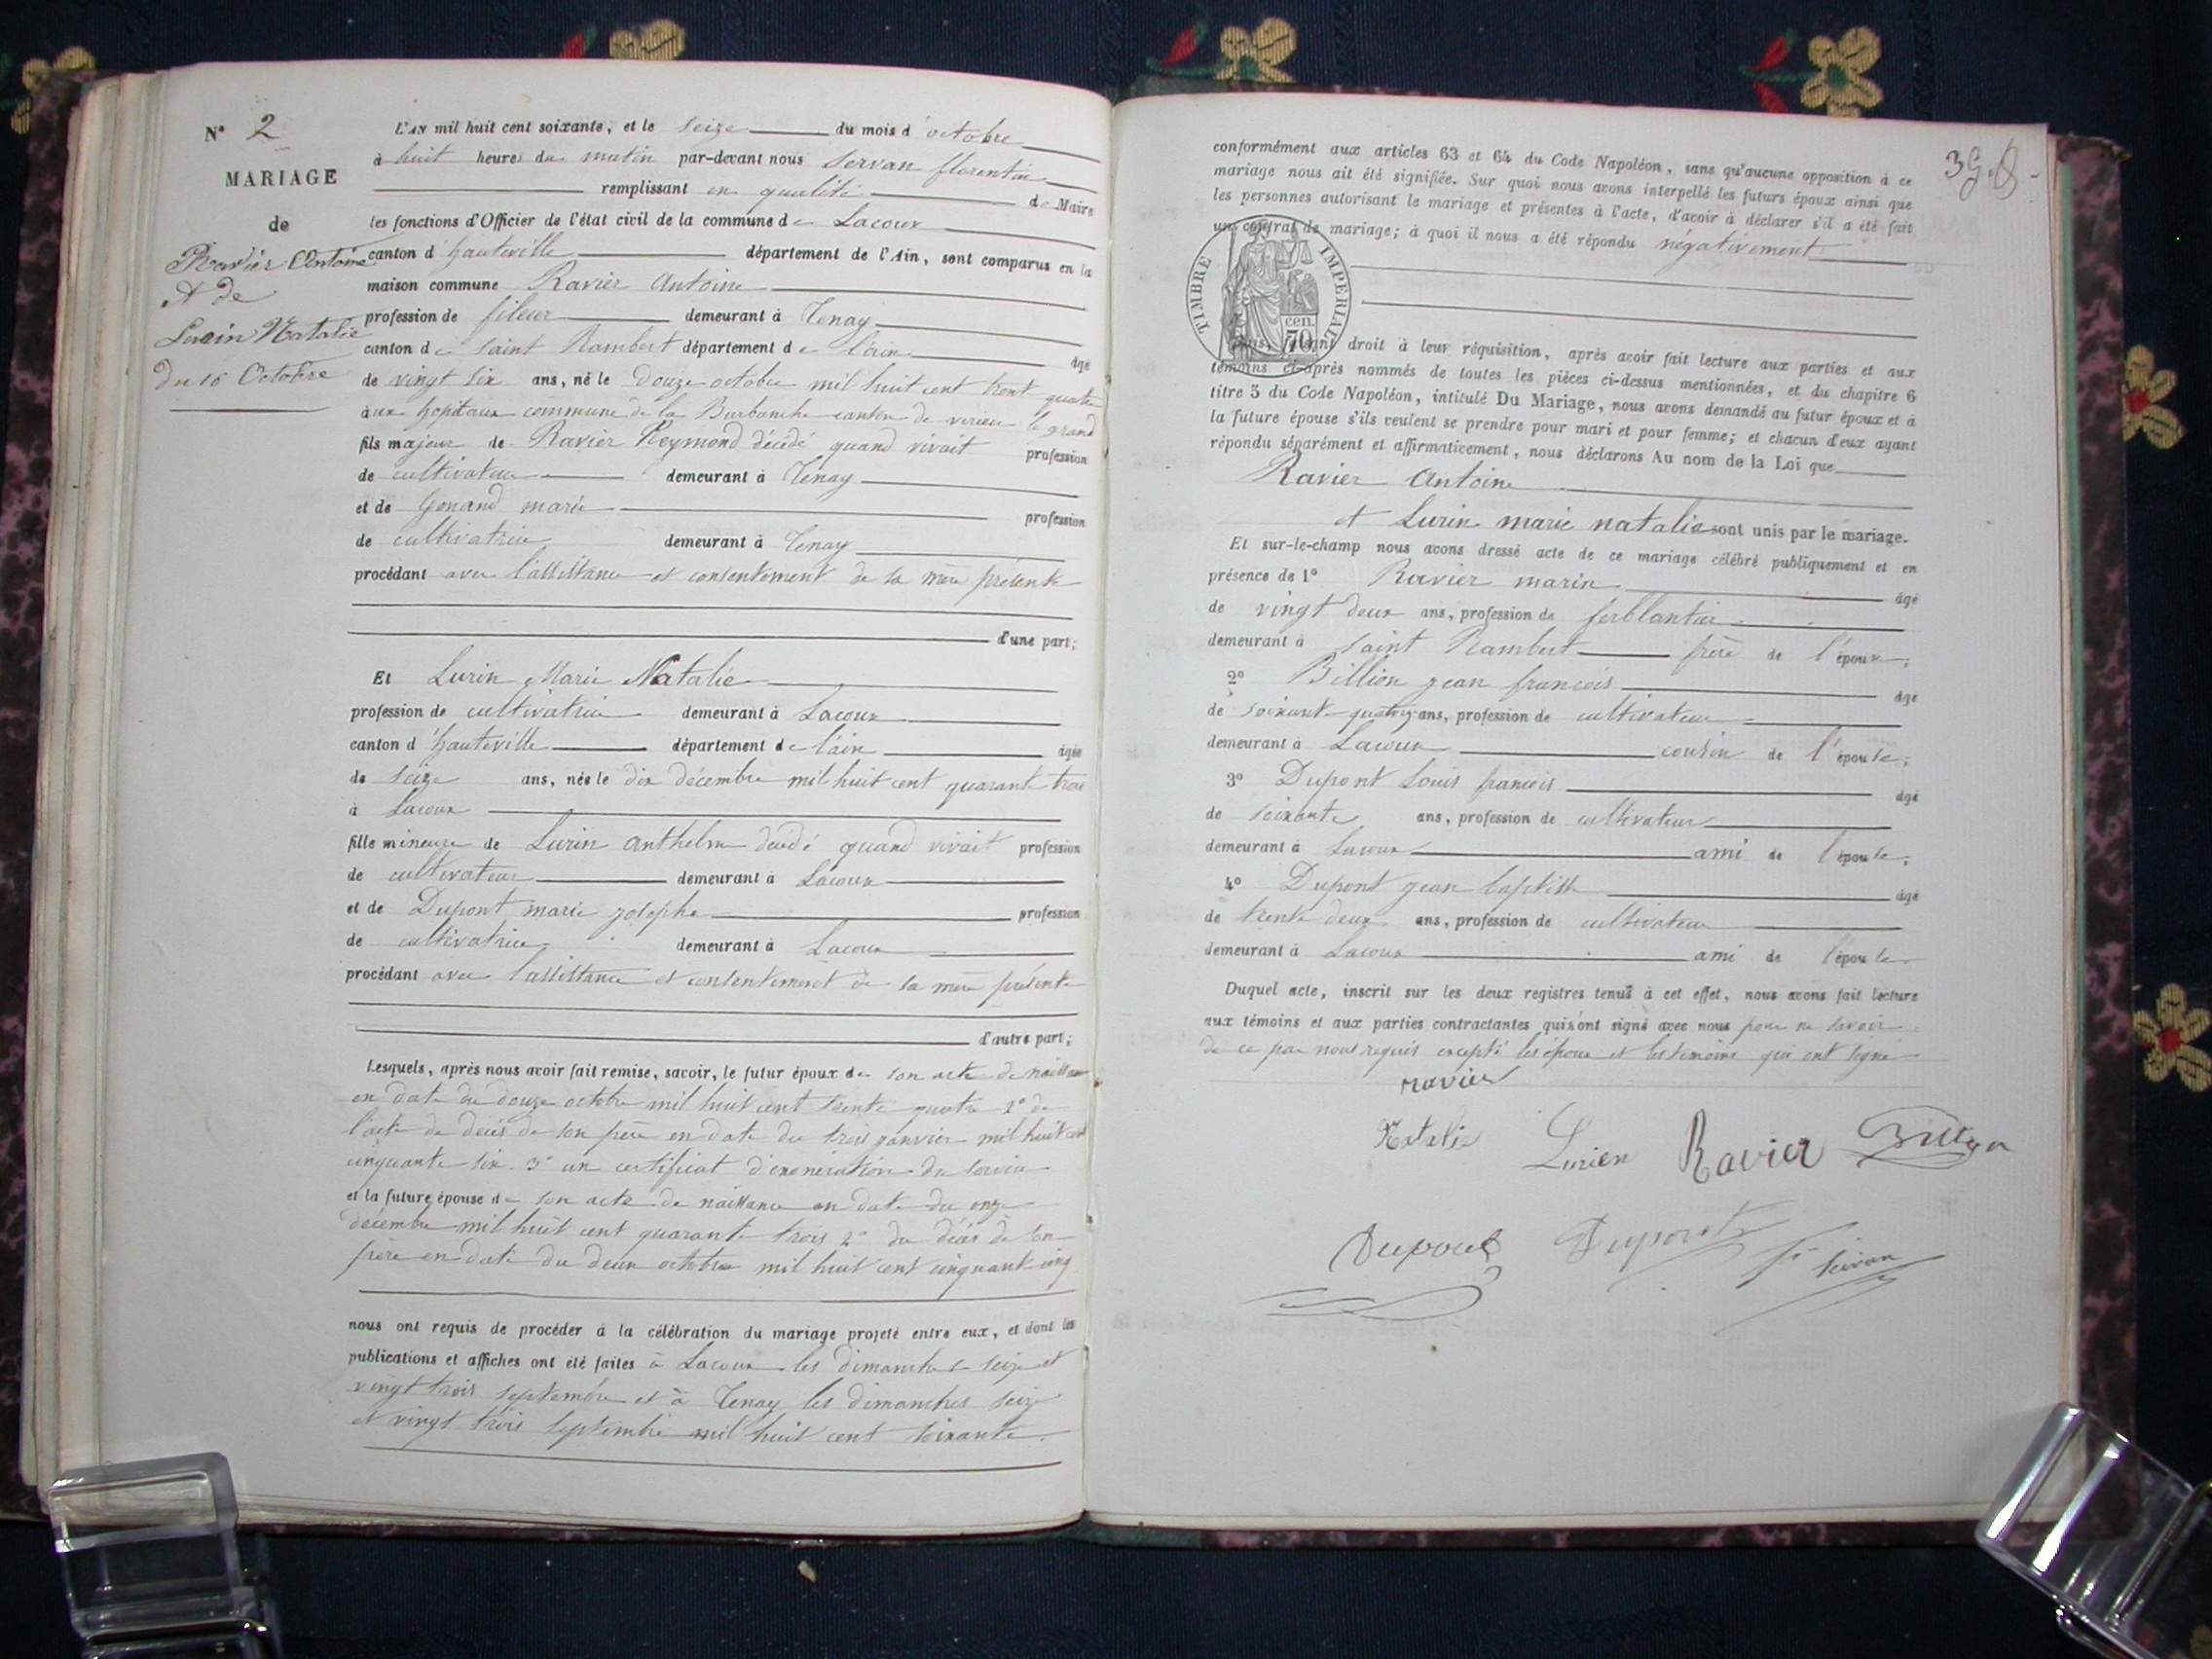 N° 2
MARIAGE
de
Ravier Antoine
et de
Lurin Natalie
du 16 Octobre
L'AN mil huit cent soixante, et le seize du mois d'octobre
à huit heures du matin par-devant nous Servan florentin
remplissant en qualité de Maire
les fonctions d'Officier de l'état civil de la commune de Lacoux
canton d'hauteville département de l'Ain, sont comparus en la
maison commune Ravier Antoine
profession de fileur demeurant à Tenay
canton de Saint Rambert département de l'ain âgé
de vingt six ans, né le douze octobre mil huit cent trent quatre
aux hopitaux commune de la Burbanche canton de virieu le grand
fils majeur de Ravier Reymond décédé quand vivait profession
de cultivateur demeurant à Tenay
et de Gonand marie profession
de cultivatrice demeurant à Tenay
procédant avec l'assistance et consentement de sa mère présente
d'une part;
Et Lurin Marie Natalie
profession de cultivatrice demeurant à Lacoux
canton d'hauteville département de l'ain âgée
de seize ans, née le dix décembre mil huit cent quarante trois
à Lacoux
fille mineure de Lurin anthelme décédé quand vivait profession
de cultivateur demeurant à Lacoux
et de Dupont marie josephe profession
de cultivatrice demeurant à Lacoux
procédant avec l'assistance et consentement de sa mere présente
d'autre part;
Lesquels, après nous avoir fait remise, savoir, le futur époux de son acte de naissance
en date du douze octobre mil huit cent trente quatre 2° de
l'acte de décès de son père en date du trois janvier mil huit cent
cinquante six 3° un certificat d'exonération du service
et la future épouse de son acte de naissance en date du onze
décembre mil huit cent quarante trois 2° du décès de son
père en date du deux octobre mil huit cent cinquante cinq
nous ont requis de procéder à la célébration du mariage projeté entre eux, et dont les
publications et affiches ont été faites à Lacoux les dimanches seize et
vingt trois septembre et à Tenay les dimanches seize
et vingt trois septembre mil huit cent soixante.
conformément aux articles 63 et 64 du Code Napoléon, sans qu'aucune opposition à ce
mariage nous ait été signifiée. Sur quoi nous avons interpellé les futurs époux ainsi que
les personnes autorisant le mariage et présentes à l'acte, d'avoir à déclarer s'il a été fait
un contrat de mariage; à quoi il nous a été répondu négativement
TIMBRE IMPERIAL
70 cen.
Puis, faisant droit à leur réquisition, après avoir fait lecture aux parties et aux
témoins ci-après nommés de toutes les pièces ci-dessus mentionnées, et du chapitre 6
titre 5 du Code Napoléon, intitulé Du Mariage, nous avons demandé au futur époux et à
la future épouse s'ils veulent se prendre pour mari et pour femme; et chacun d'eux ayant
répondu séparément et affirmativement, nous déclarons Au nom de la Loi que
Ravier Antoine
et Lurin marie natalie sont unis par le mariage.
Et sur-le-champ nous avons dressé acte de ce mariage célébré publiquement et en
présence de 1° Ravier marin âgé
de vingt deux ans, profession de ferblantier
demeurant à Saint Rambert frère de l'époux;
2° Billion jean francois âgé
de soixante quatorze ans, profession de cultivateur
demeurant à Lacoux cousin de l'épouse;
3° Dupont Louis francois âgé
de soixante ans, profession de cultivateur
demeurant à Lacoux ami de l'épouse;
4° Dupont jean baptiste âgé
de trente deux ans, profession de cultivateur
demeurant à Lacoux ami de l'épouse
Duquel acte, inscrit sur les deux registres tenus à cet effet, nous avons fait lecture
aux témoins et aux parties contractantes qui s'ont signé avec nous pour ne savoir
de ce par nous requis excepté les époux et les témoins qui ont signé
ravier
Natalie Lurien Ravier Billion
Dupont Dupont Servan